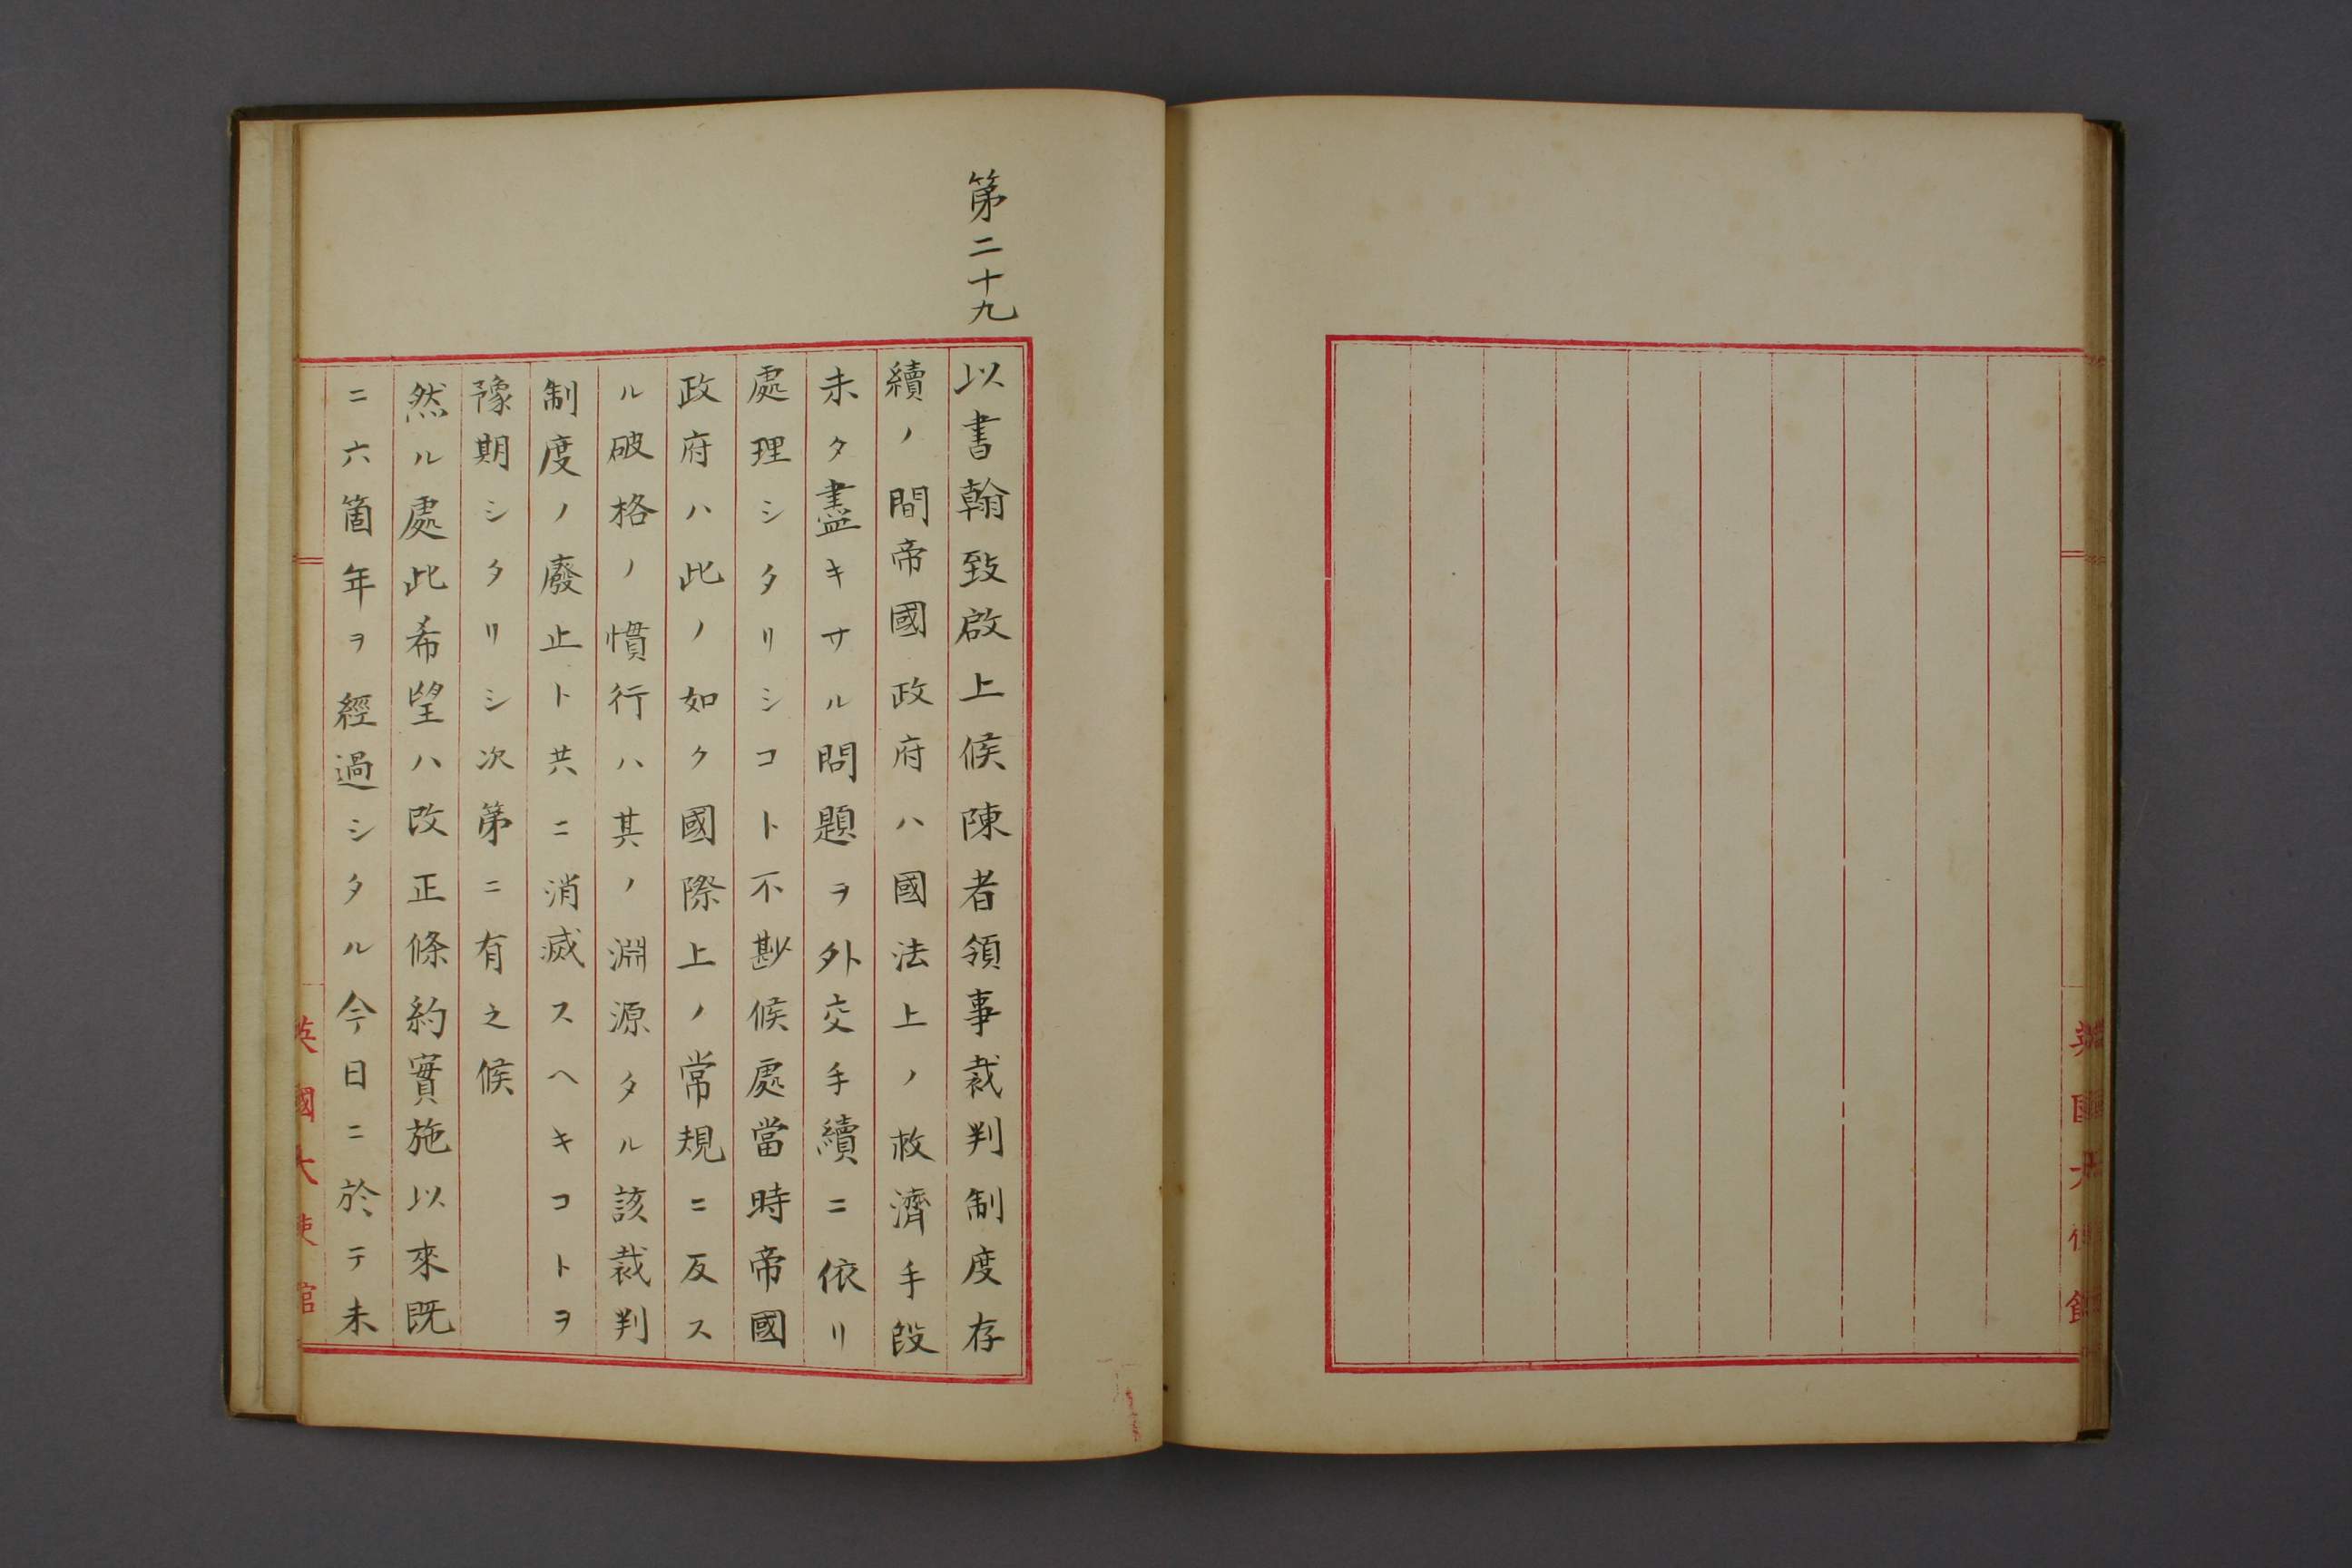 第二十九
以書翰致啟上候陳者領事裁判制度存
續ノ間帝國政府ハ國法上ノ救濟手段
未タ盡キサル問題ヲ外交手續ニ依リ
處理シタリシコト不尠候處當時帝國
政府ハ此ノ如ク國際上ノ常規ニ反ス
ル破格ノ慣行ハ其ノ淵源タル該裁判
制度ノ廢止ト共ニ消滅スヘキコトヲ
豫期シタリシ次第ニ有之候
然ル處此希望ハ改正條約實施以來既
ニ六箇年ヲ經過シタル今日ニ於テ未
英國大使館
英國大使館